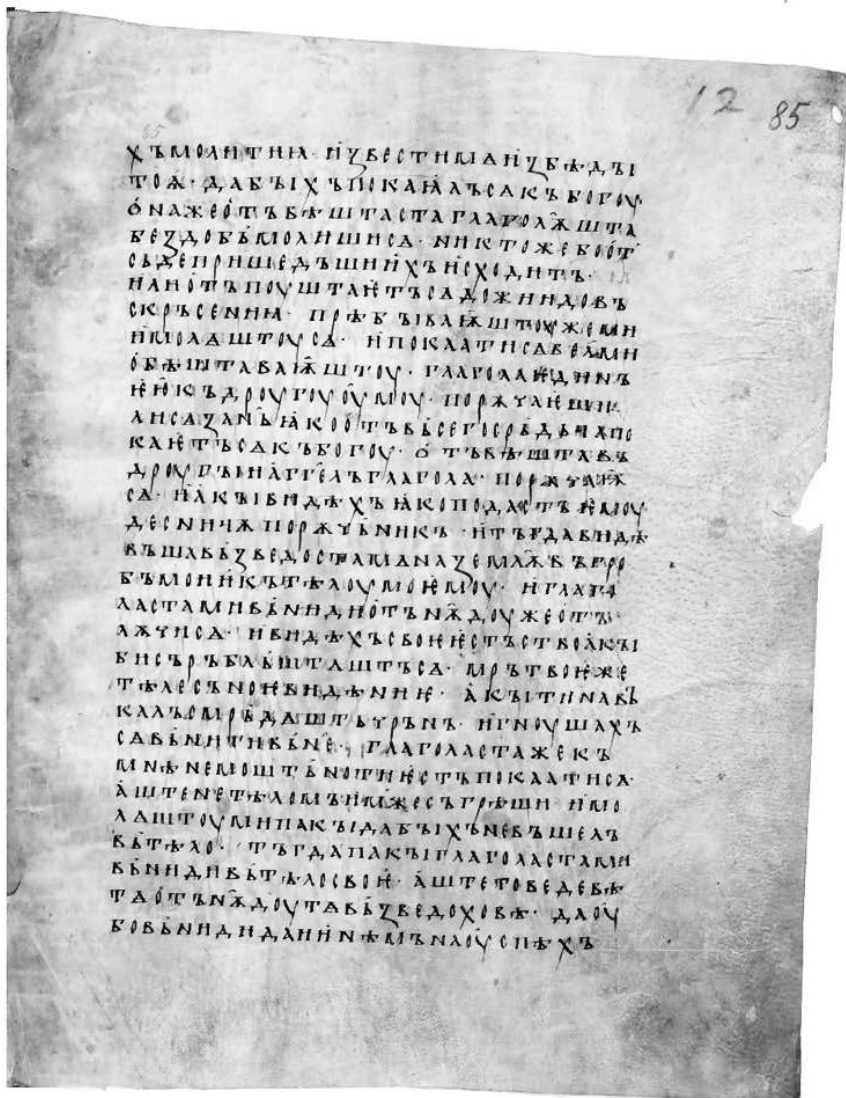 12 85
хъ молити ꙗ· извести мѧ из бѣды
тоѧ· да быхъ покаꙗлъ сѧ къ богоу·
она же отъвѣштаста глаголѭшта
без добь молиши сѧ· никтоже бо от
сьде пришедъшиихъ исходитъ·
ни отъпоуштаѥтъ сѧ дожи и до въ
скръсениꙗ· прѣбываѭштоу же ми
и молѧштоу сѧ· и покаати сѧ велми
обѣштаваѭштоу· глагола ѥдинъ
ѥю къ дроугоуоумоу· порѫчаѥши
ли сѧ за нь ꙗко отъ вьсего срѣдьца по
каѥтъ сѧ къ богоу· отъвѣшта въ
дроугыи аггелъ глагола· порѫчаѭ
сѧ· и акы видѣхъ ꙗко подастъ ѥмоу
десницѫ порѫчьникъ· и тъгда видѣ
въша възведоста мѧ на земл҄ѭ въ гро
бъ мои и къ тѣлоу моѥмоу· и глаго
ласта ми вьниди отъ нѫдоуже отъ
лѫчи сѧ· и видѣхъ своѥ ѥстьство акы
бисьръ бльштѧштъ сѧ· мрътвоѥ же
тѣлесьноѥ видѣниѥ· акы тина въ
калъ смрьдѧшть чрънъ· и гноушахъ
сѧ вьнити вь нѥ· глаголаста же къ
мнѣ не моштьно ти ѥстъ покаати сѧ·
аште не тѣломъ имьже съгрѣши и мо
лѧштоу ми пакы да быхъ не въшелъ
вь тѣло· тъгда пакы глаголаста ми
вьниди вь тѣло своѥ· аште то ведевѣ
тѧ отънѫдоу тѧ възведоховѣ· да оу
бо вьниди да и инѣмъ на оуспѣхъ